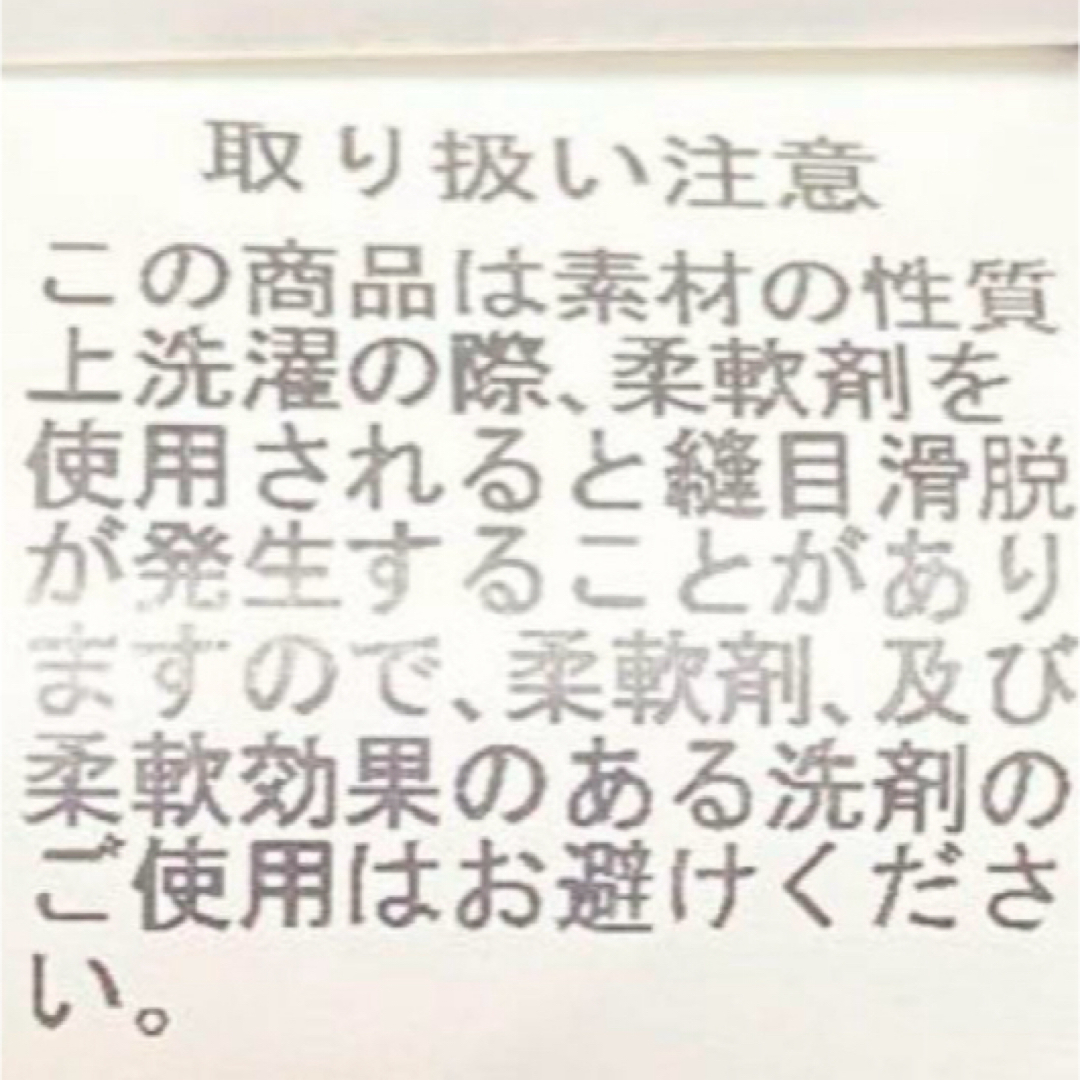 取り扱い注意
この商品は素材の性質
上洗濯の際、柔軟剤を
使用されると縫目滑脱
が発生することがあり
ますので、柔軟剤、及び
柔軟効果のある洗剤の
ご使用はお避けくださ
い。